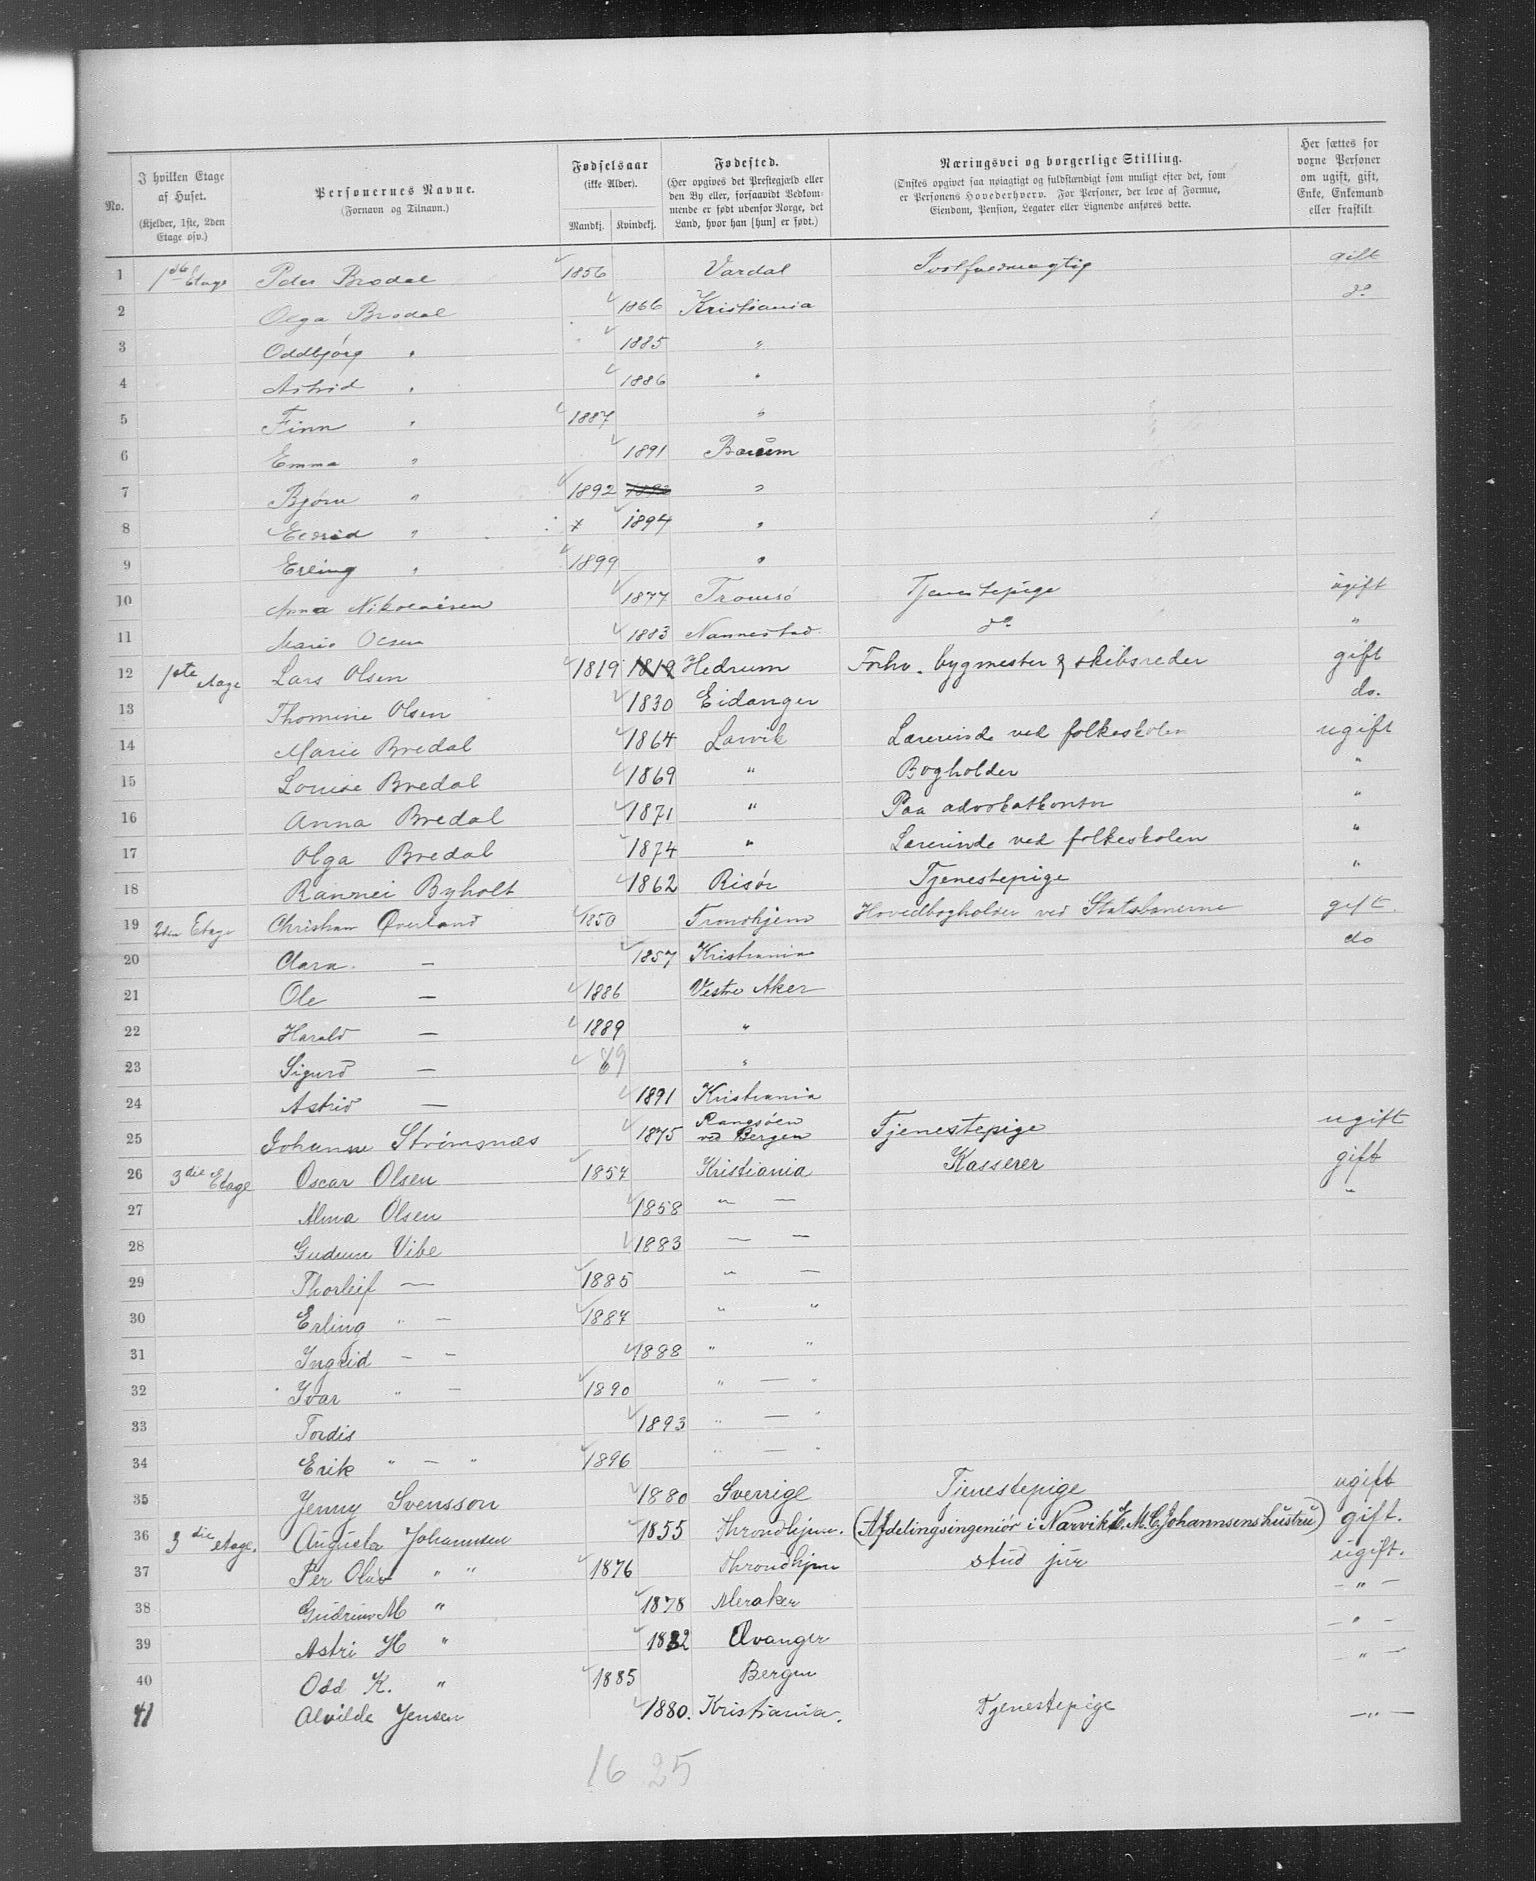 No.
I hvilken Etage af Huset. (Kjelder, 1ste, 2den Etage osv.)
Personernes Navne. (Fornavn og Tilnavn.)
Fødselsaar (ikke Alder). Mandkj. Kvindekj.
Fødested. (Her opgives det Prestegjæld eller den By eller, forsaavidt Vedkommende er født udenfor Norge, det Land, hvor han [hun] er født.)
Næringsvei og borgerlige Stilling. (Ønskes opgivet saa nøiagtigt og fuldstændigt som muligt efter det, som er Personens Hovederhverv. For Personer, der leve af Formue, Eiendom, Pension, Legater eller Lignende anføres dette.
Her sættes for voxne Personer om ugift, gift, Enke, Enkemand eller fraskilt.
1 1ste Etage Peder Brodal 1856 Vardal Postfuldmægtig gift
2 Olga Brodal 1866 Kristiania do
3 Oddbjørg " 1885 "
4 Astrid " 1886 "
5 Finn " 1887 "
6 Emma " 1891 Bærum
7 Bjørn " 1892 1892 "
8 " x 1894 "
9 Erling " 1899 "
10 Anna Nikolaisen 1877 Tromsø Tjenestepige ugift
11 Marie Olsen 1883 Nannestad do "
12 1ste etage Lars Olsen 1819 1819 Hedrum Forhv. bygmester & skibsreder gift
13 Thomine Olsen 1830 Eidanger do.
14 Marie Bredal 1864 Larvik Lærerinde ved folkeskolen ugift
15 Louise Bredal 1869 " Bogholder "
16 Anna Bredal 1871 " Paa advokatkontor "
17 Olga Bredal 1874 " Lærerinde ved folkeskolen "
18 Rannei Byholt 1862 Risør Tjenestepige "
19 2den Etage Christian Øverland 1850 Trondhjem Hovedbogholder ved Statsbanerne gift.
20 Clara. — 1857 Kristiania do
21 Ole — 1886 Vestre Aker
22 Harald — 1889 "
23 Sigurd — 89 "
24 Astrid — 1891 Kristiania
25 Johanne Strømsnæs 1875 ved Bergen Tjenestepige ugift
26 3die Etage Oscar Olsen 1857 Kristiania Kasserer gift
27 Alma Olsen 1858 " — "
28 Gudrun Vibe 1883 — —
29 Thorleif — 1885 " —
30 Erling " — 1887 " "
31 Ingrid — " 1888 " "
32 Ivar " — 1890 " — "
33 Tordis 1893 " — "
34 Erik " — " 1896 " — "
35 Jenny Svensson 1880 Sverrige Tjenestepige ugift
36 3die etage. Augusta Johannsen 1855 Throndhjem. (Afdelingsingeniør i Narvik E. M. C. Johannsens hustru) gift.
37 Per Olav " " 1876 Throndhjem stud jur ugift.
38 Gudrun M " 1878 Meraker — " —
39 Astri H " 1882 Levanger — " —
40 Odd K. " 1885 Bergen — " —
41 Alvilde Jensen 1880. Kristiania. Tjenestepige — " —
16 25